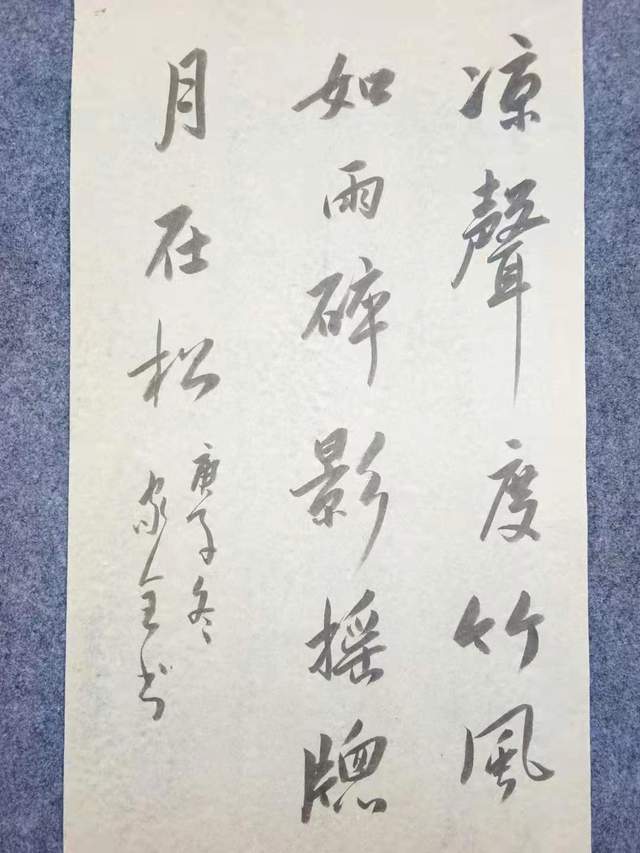 凉聲度竹風
如雨碎影摇牕
月在松
庚子冬
家全书